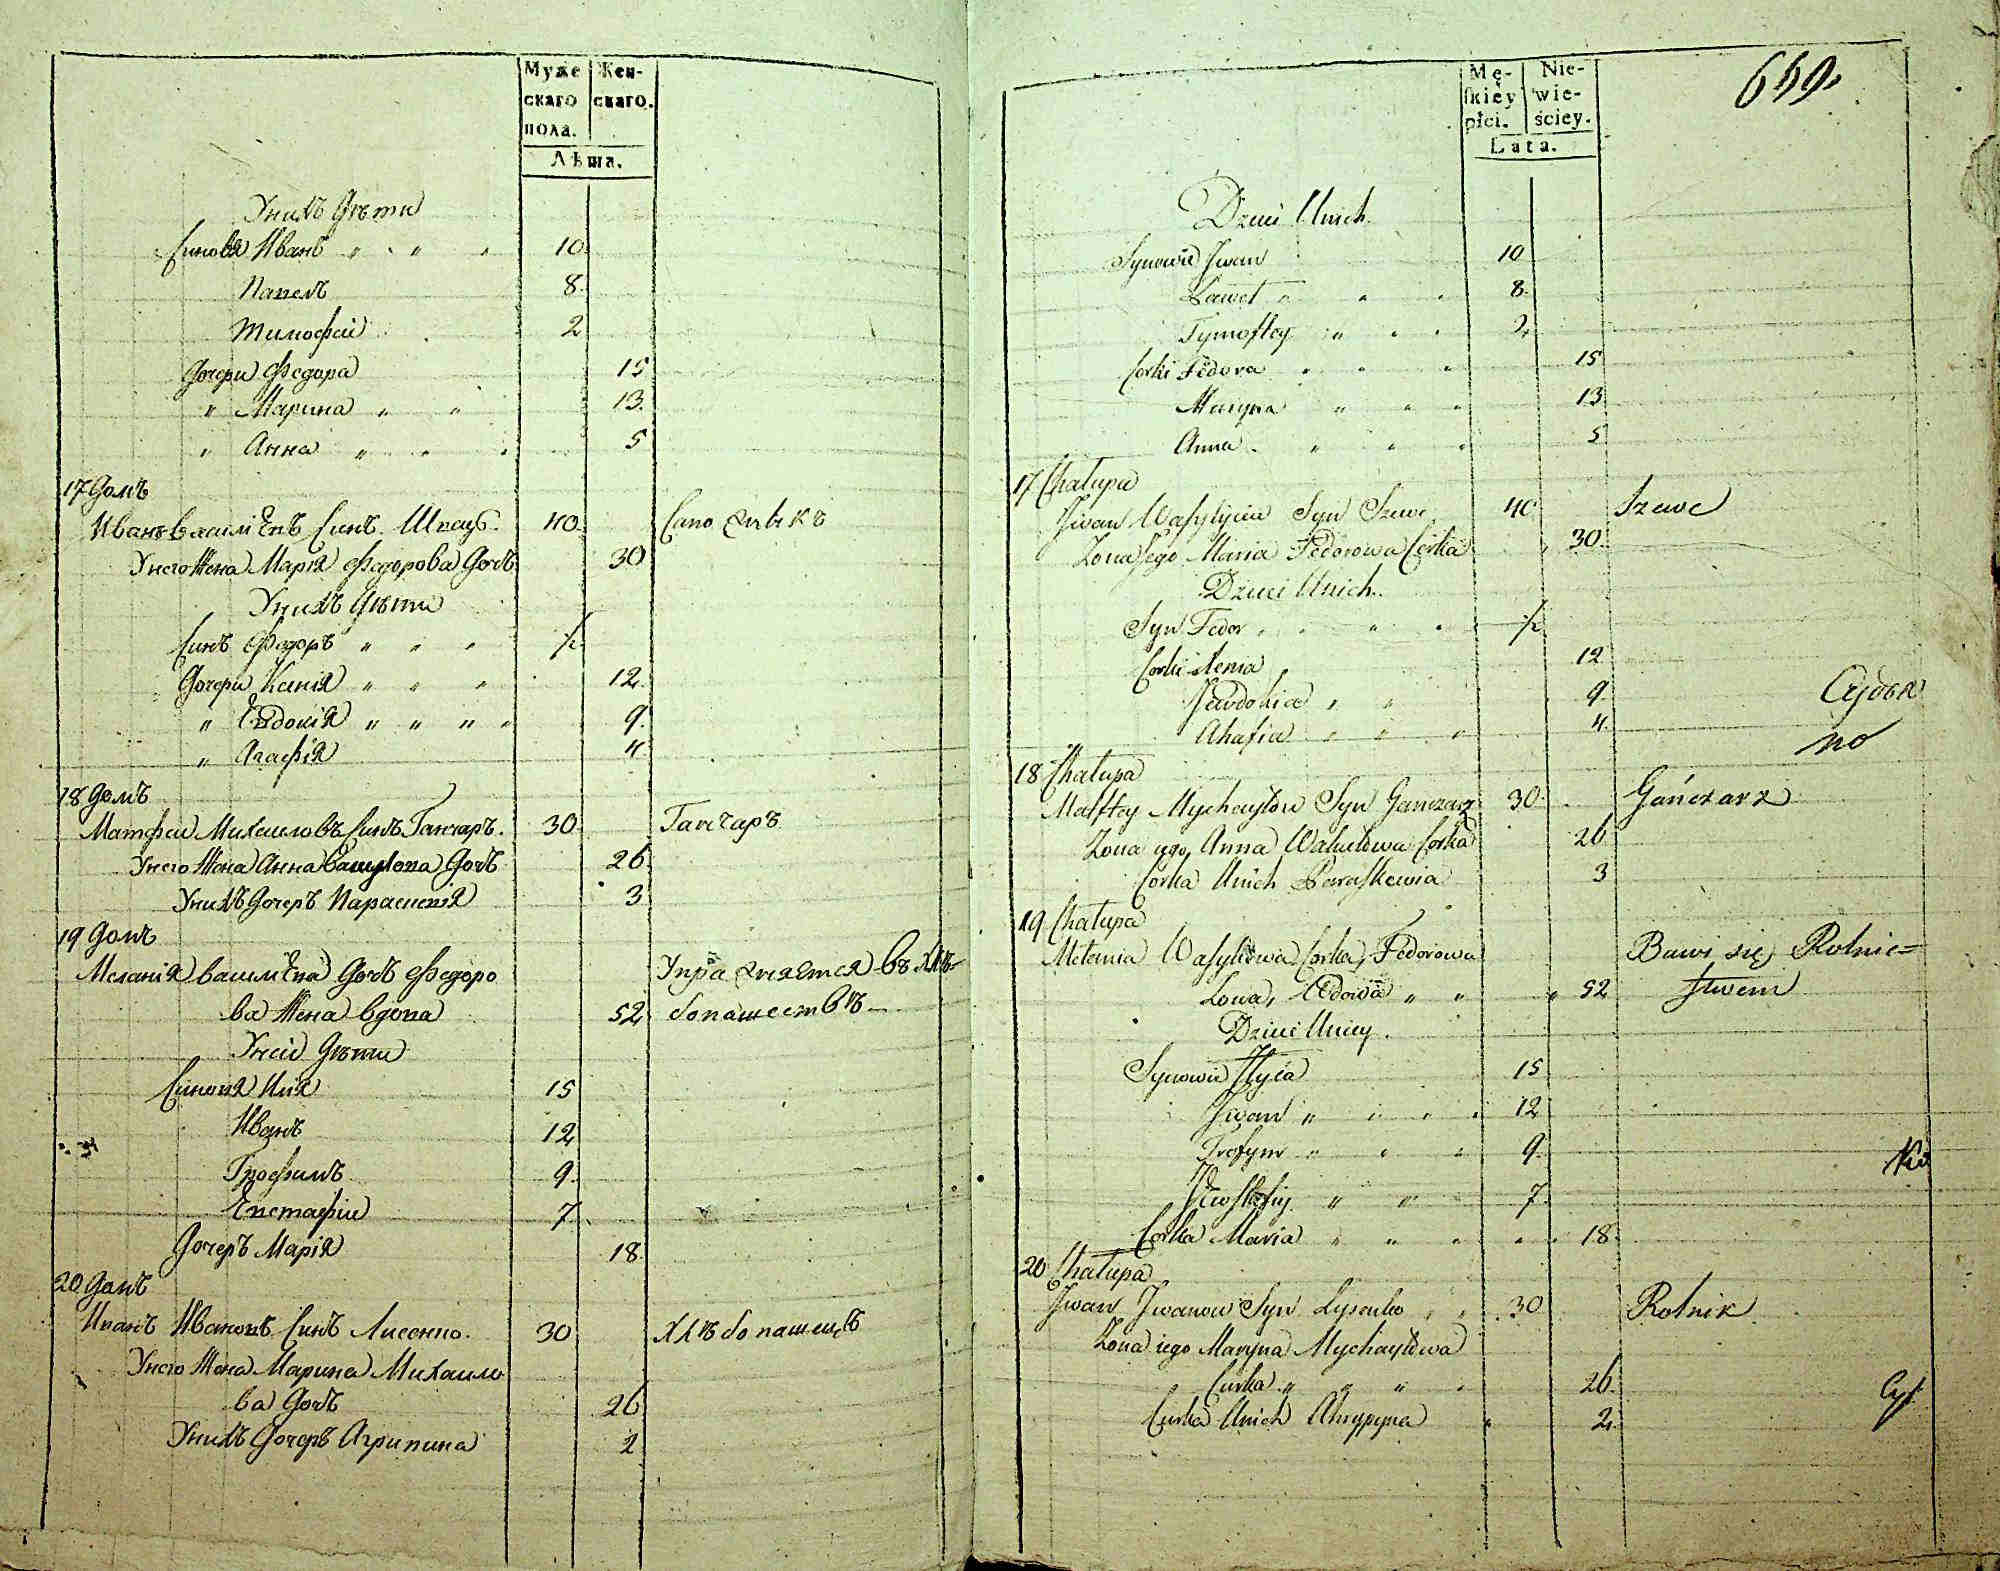 Муже
скаго
пола.
Жен-
скаго.
Лѣта.
Унихъ Дѣти
Синовя Иванъ 10
Павелъ 8
Тимофей 2
Дочери Федора 15
Марина 13
Анна 5
17 Домъ
Иванъ василіевъ Синъ Швецъ. 40 Сапожникъ
Унего Жена Марія Федорова Дочь 30
Унихъ Дѣти
Синъ Федоръ ½
Дочери Ксенія 12
Евдокія 9
Агафія 4
18 Домъ
Матфей Михаиловъ Синъ Ганчаръ. 30 Ганчаръ
Унего Жена Анна Дочь 26
Унихъ Дочеръ Параскевія 3
19 Домъ
Меланія василіева Дочь Федоро
ва Жена вдова 52
Упражняется въ хлѣ-
бопашествѣ
Унеіе Дѣти
Синовя Илія 15
Иванъ 12
Трофимъ 9
Евстафій 7
Дочеръ Марія 18
20 Домъ
Иванъ Ивановъ Синъ Лисенко. 30 хлѣбопашецъ
Унего Жена Марина Михаило
ва Дочь 26
Унихъ Дочеръ Агрипина 2
649.
Mę-
skiey
płci.
Nie-
wie-
ściey.
Lata.
Dzieci Unich.
Synowie Jwan 10
Paweł 8
Tymoftey 2
Corki Fedora 15
Maryna 13
Anna 5
17 Chałupa
Jwan Wasylijew Syn Szewc 40 Szewc
Zona Jego Maria Fedorowa Corka 30
Dzieci Unich.
Syn Fedor ½
Corki Xenia 12
Jewdokia 9
Ahafia 4
18 Chałupa
Matftey Mychayłow Syn Ganczarz 30 Gańczarz
Zona iego, Anna Corka 26
Corka Unich Paraskewia 3
19 Chałupa
Mełania Wasylowa Corka, Fedorowa
Zona, Wdowa 52
Bawi się Rolnic=
stwem
Dzieci Uniey.
Synowie Jlyia 15
Jwan 12
Trofym 9
Jewstafiy 7
Corka Maria 18
20 Chałupa
Jwan Jwanow Syn Lysenko 30 Rolnik
Zona iego Maryna Mychayłowa
Curka 26
Curka Unich Ahrypyna 2
но